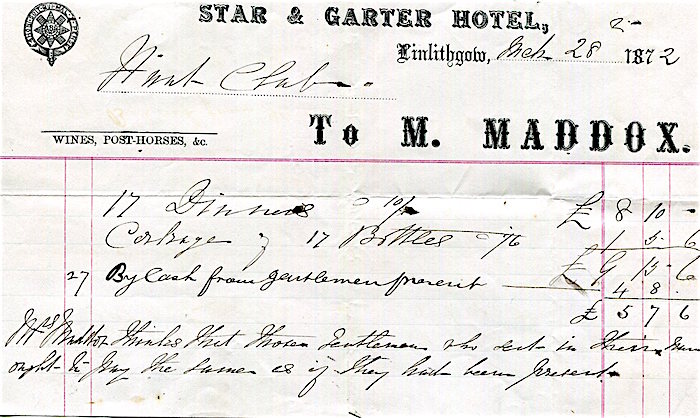 STAR & GARTER HOTEL,
Linlithgow, Mch 28 1872
Hunt Club
WINES, POST-HORSES, &c.
To M. MADDOX.
17 Dinners 10/ £ 8 10 -
Corkage of 17 Bottles 1/6 1 5 6
£ 9 15 6
27 By Cash from Gentlemen present 4 8
£ 5 7 6
Mrs Maddox thinks that those Gentlemen who sent in their
ought to pay the same as if they had been present.